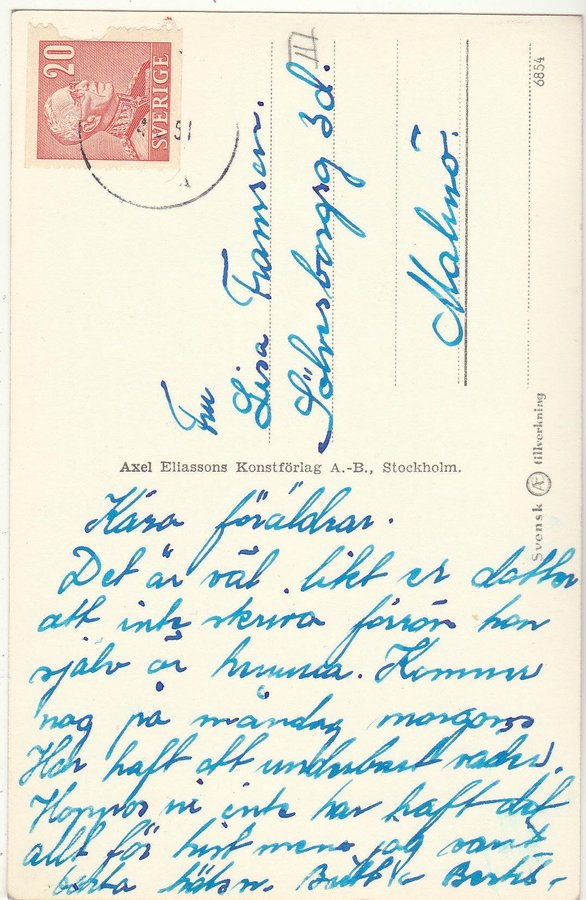 20
SVERIGE
51
III
Fru
Lisa Fransson.
Sölvesborgsg 3d.
Malmö.
6854
Svensk Æ tillverkning
Axel Eliassons Konstförlag A.-B., Stockholm.
Kära föräldrar.
Det är väl likt er dotter
att inte skriva förrän hon
själv är hemma. Kommer
nog på måndag morgon
Har haft ett underbart väder.
Hoppas ni inte har haft det
allt för mens jag varit
borta